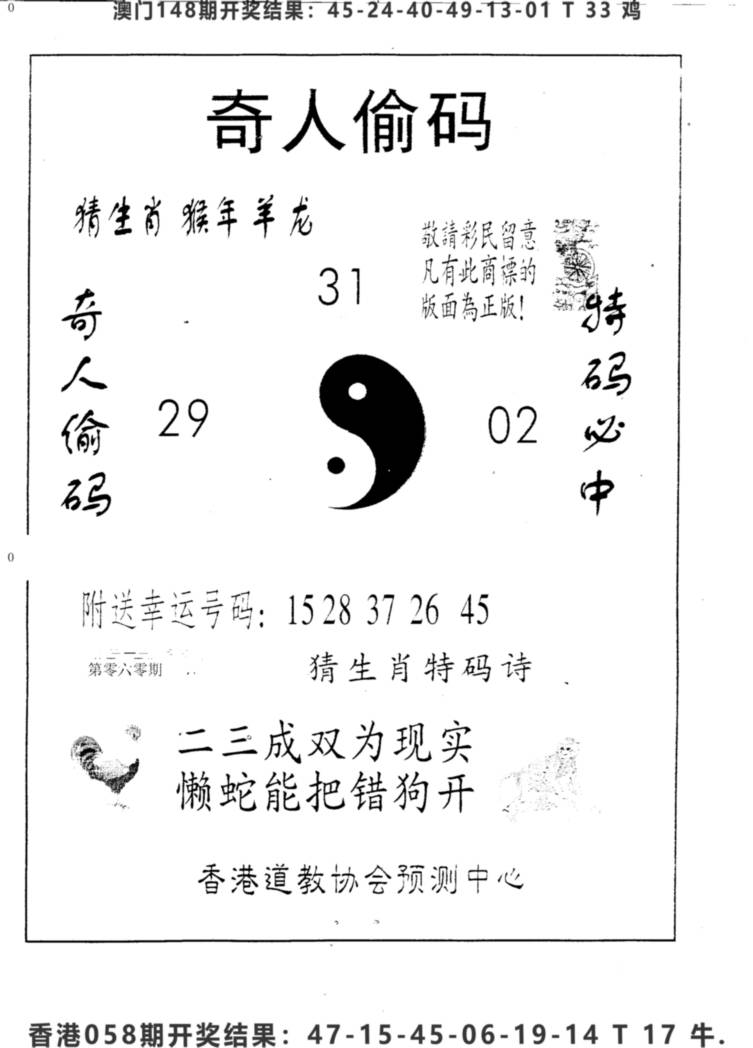 澳门148期开奖结果：45-24-40-49-13-01 T 33 鸡
奇人偷码
猜生肖 猴年羊龙
敬請彩民留意
凡有此商標的
版面為正版！
31
奇人偷码
29
02
特码必中
附送幸运号码：15 28 37 26 45
第零六零期
猜生肖特码诗
二三成双为现实
懒蛇能把错狗开
香港道教协会预测中心
香港058期开奖结果：47-15-45-06-19-14 T 17 牛.
0
0